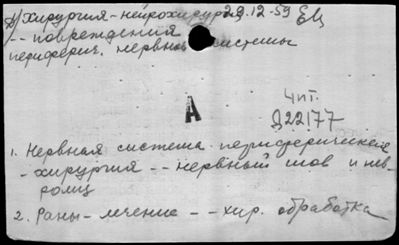 д) хирургия - нейрохирургия 29.12-59 Ец
-- повреждения
периферич. нервной системы
А
Чит.
Д22177
1. Нервная система периферическая
- хирургия -- нервный шов и нев-
ролиз
2. Раны - лечение -- хир. обработка